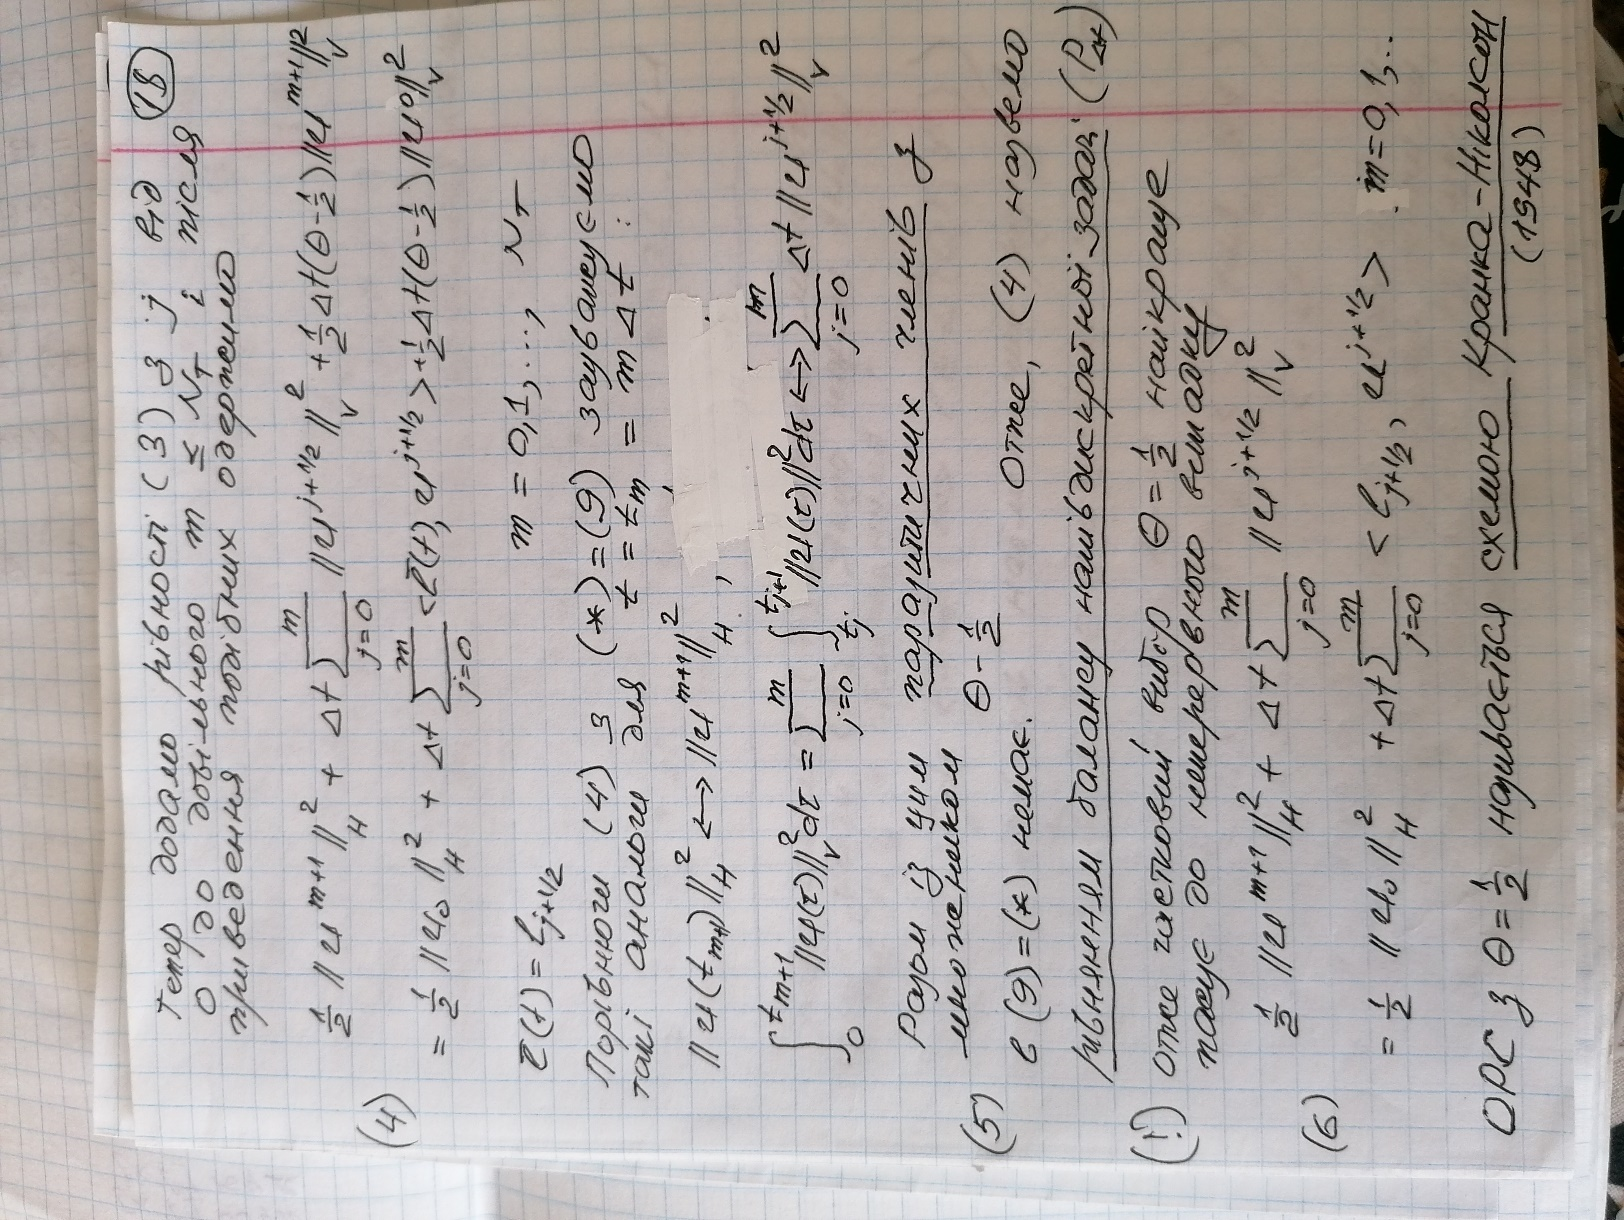 (18)
Тепер додамо рівності (3) з j від
0 до довільного m ≤ N_T і після
приведення подібних одержимо
(4) ½ ||u^{m+1}||²_H + Δt ∑_{j=0}^{m} ||u^{j+1/2}||²_V + ½Δt(θ-½)||u^{m+1}||²_V
= ½ ||u₀||²_H + Δt ∑_{j=0}^{m} <l̄(t), u^{j+1/2}> + ½Δt(θ-½)||u⁰||²_V
l̄(t) = l_{j+1/2} m = 0,1,..., N_T
Порівнюючи (4) з (*)=(9) зауважуємо
такі аналоги для t = t_m = mΔt :
||u(t_{m+1})||²_H ↔ ||u^{m+1}||²_H ,
∫_0^{t_{m+1}} ||u(τ)||²_V dτ = ∑_{j=0}^{m} ∫_{t_j}^{t_{j+1}} ||u(τ)||² dτ ↔ ∑_{j=0}^{m} Δt ||u^{j+1/2}||²_V
Разом із цим паразитичних членів з
множником θ - ½
(5) в (9)=(*) немає. Отже, (4) назвемо
рівнянням балансу напівдискретної задачі (P_{Δt})
(!) Отже частковий вибір θ = ½ найкраще
пасує до неперервного випадку
(6) ½ ||u^{m+1}||²_H + Δt ∑_{j=0}^{m} ||u^{j+1/2}||²_V
= ½ ||u₀||²_H + Δt ∑_{j=0}^{m} <l_{j+1/2}, u^{j+1/2}> m=0,1,...
ОРС з θ = ½ називається схемою Кранка-Ніколсон
(1948)